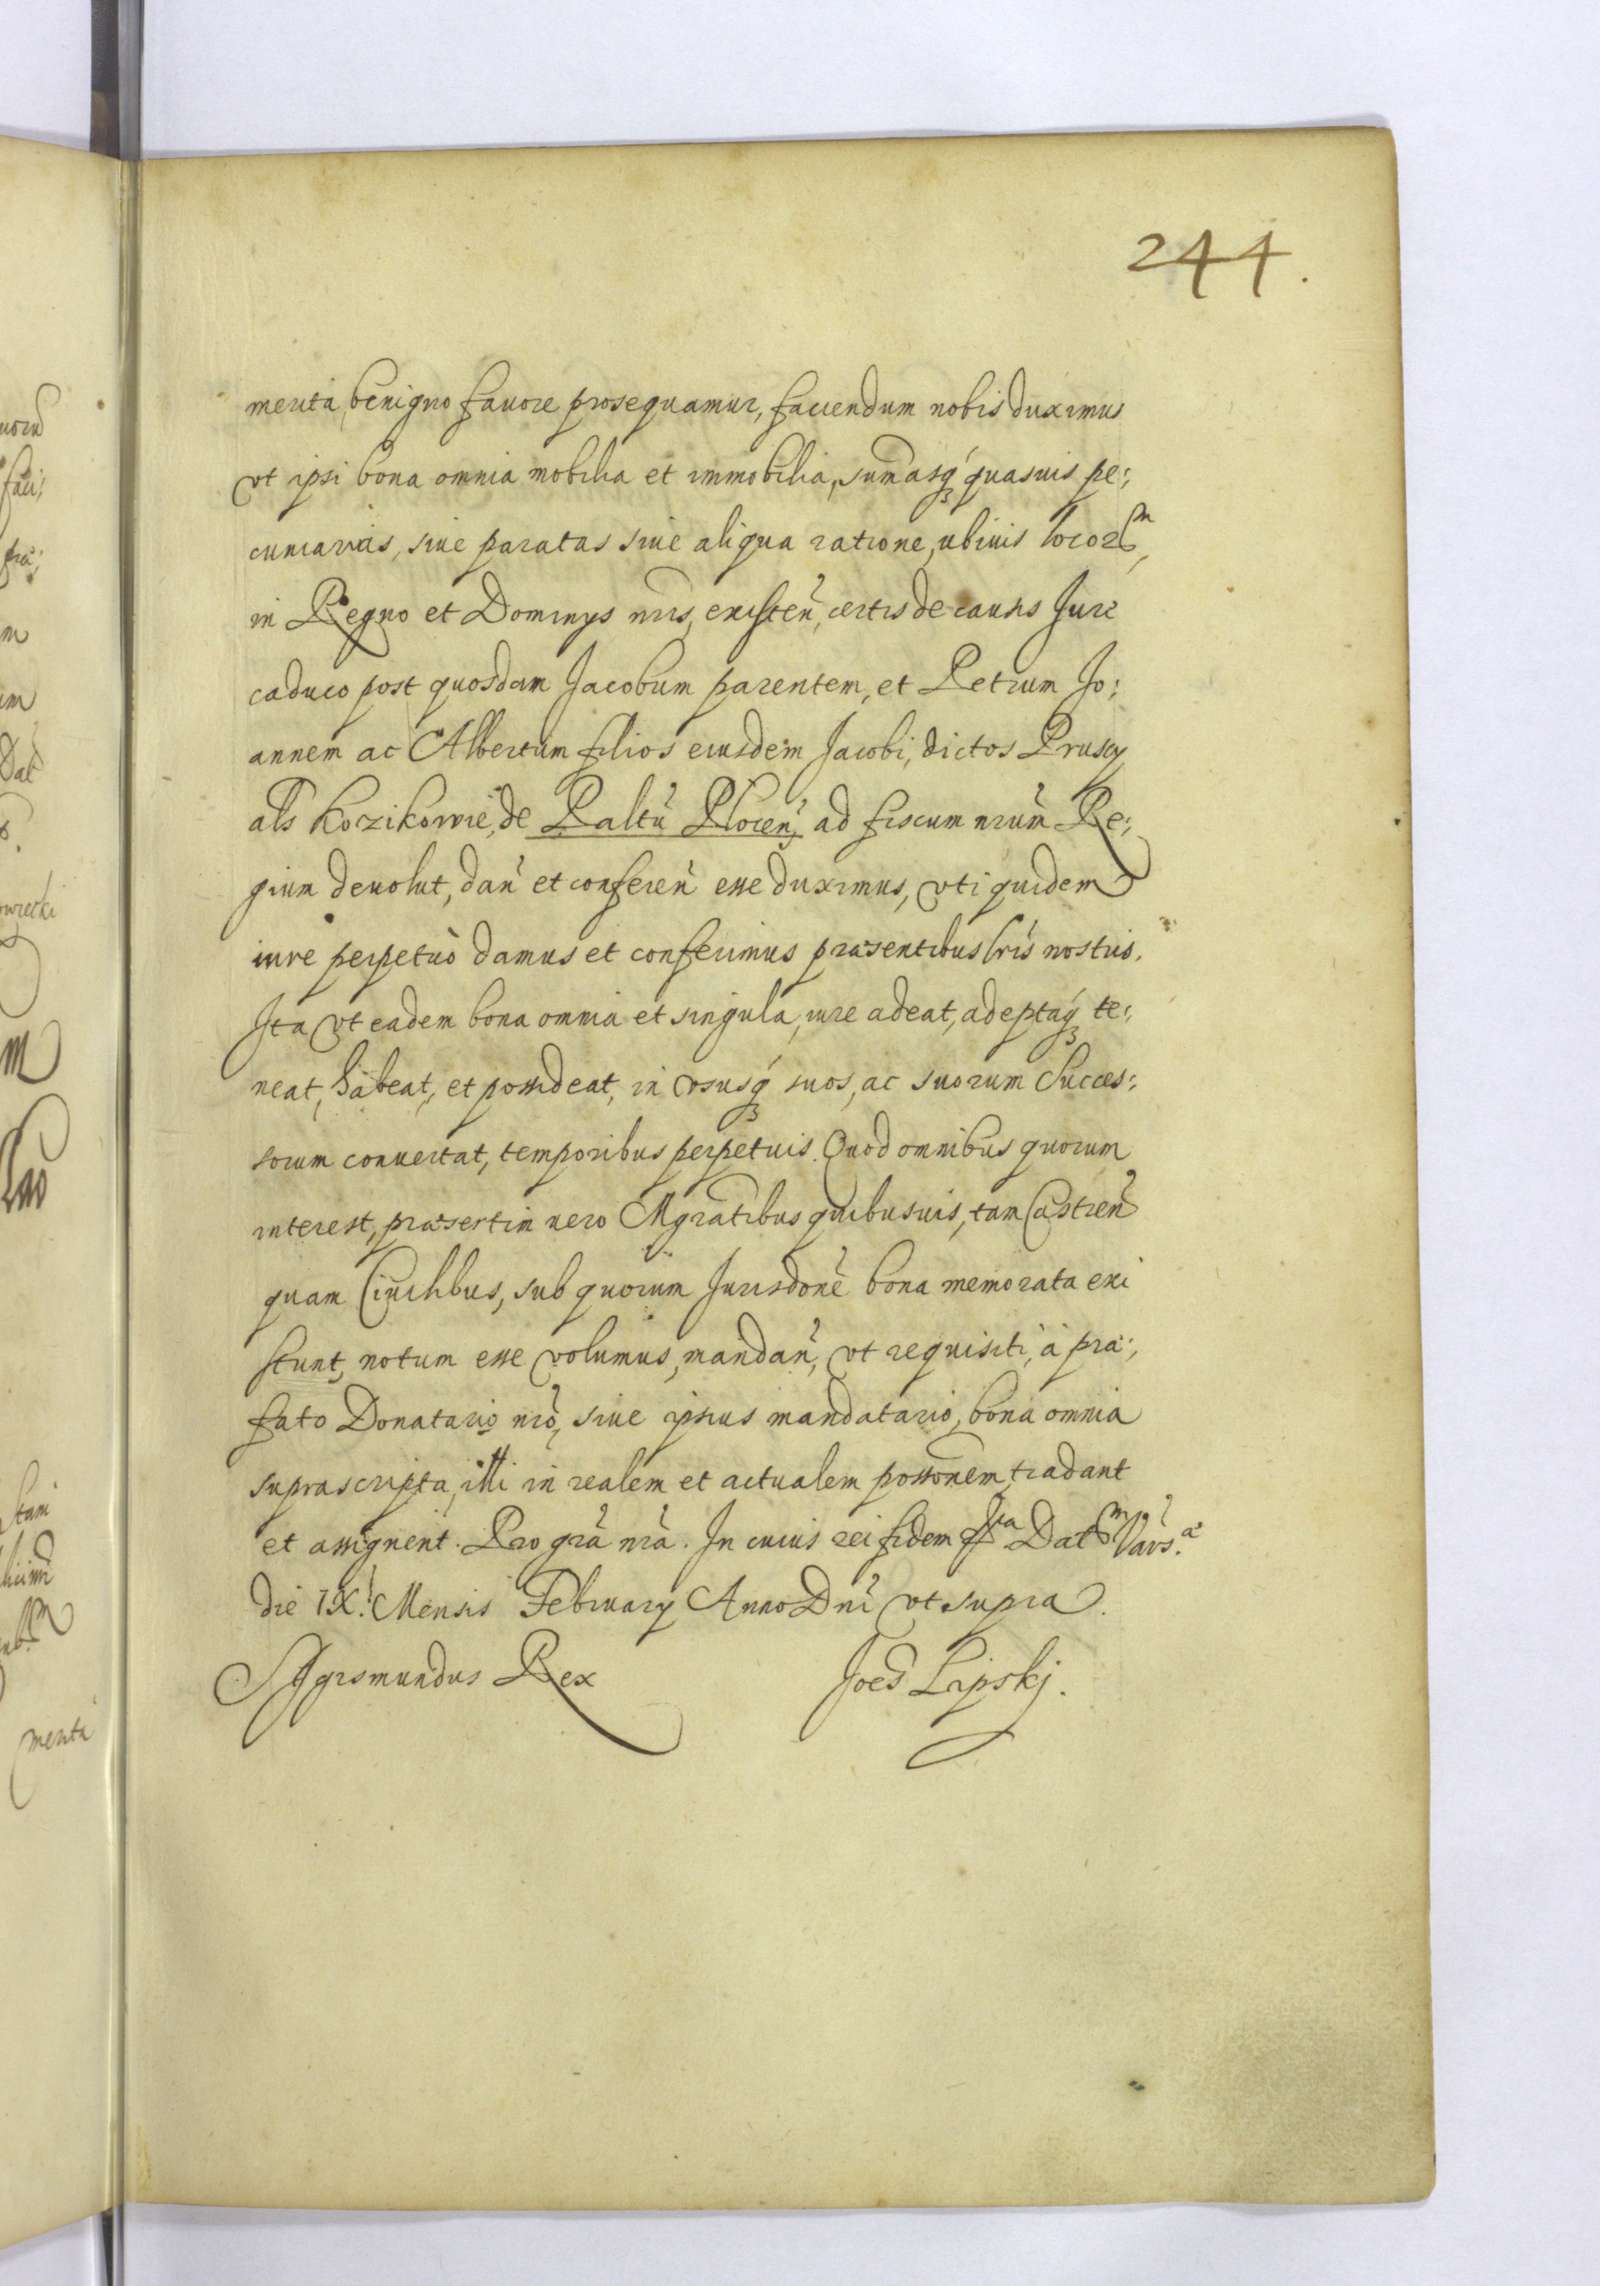 244.
merita, benigno favore prosequamur, faciendum nobis duximus
vt ipsi bona omnia mobilia et immobilia, sum̃asq́3 quasuis pe:,
cuniarias, siue paratas siue aliqua ratione, ubiuis locor͠m,
in Regno et Dominys nr̃is, existeñ, certis de causis Jure
caduco post quosdam Jacobum parentem, et Petrum Jo:,
annem ac Albertum filios eiusdem Jacobi, dictos Pruscy
al̃s Kozikowie, de Paltũ Ploceñ, ad fiscum nr̃um Re:,
gium deuolut, dañ et confereñ esse duximus, vti quidem
iure perpetuò damus et conferimus præsentibus l̃ris nostris.
Ita vt eadem bona omnia et singula, iure adeat, adeptaq́3 te:,
neat, habeat, et possideat, in vsusq́3 suos, ac suorum Succes:,
sorum conuertat, temporibus perpetuis. Quod omnibus quorum
interest, præsertim uero Mgrãtibus quibusuis, tam Castreñ
quam Ciuilibus, sub quorum Jurisdoñe bona memorata exi
stunt, notum esse volumus, mandañ, vt requisiti, à præ:,
fato Donatario nr̃o, siue ipsius mandatario, bona omnia
suprascripta, illi in realem et actualem possõnem, tradant
et assignent. Pro gr̃a nr̃a. In cuius rei fidem Dat͠m Vars.a
die IX. Mensis February Anno Dñi vt supra.
Sigismundus Rex
Joẽs Lipskj.
merita